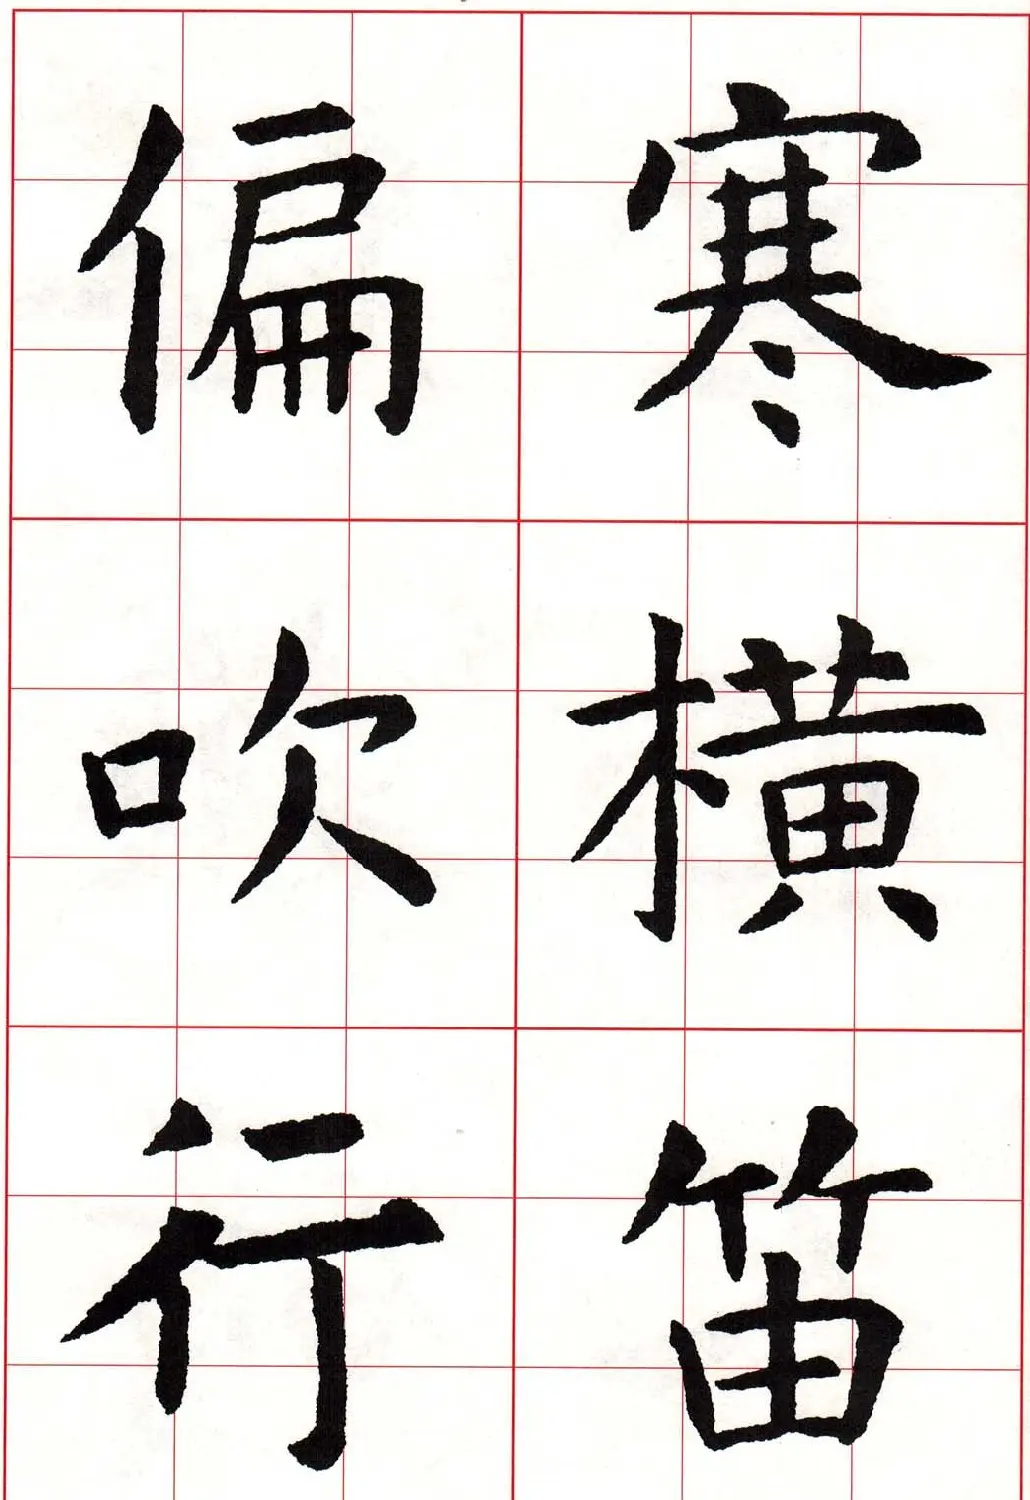 寒橫笛
偏吹行